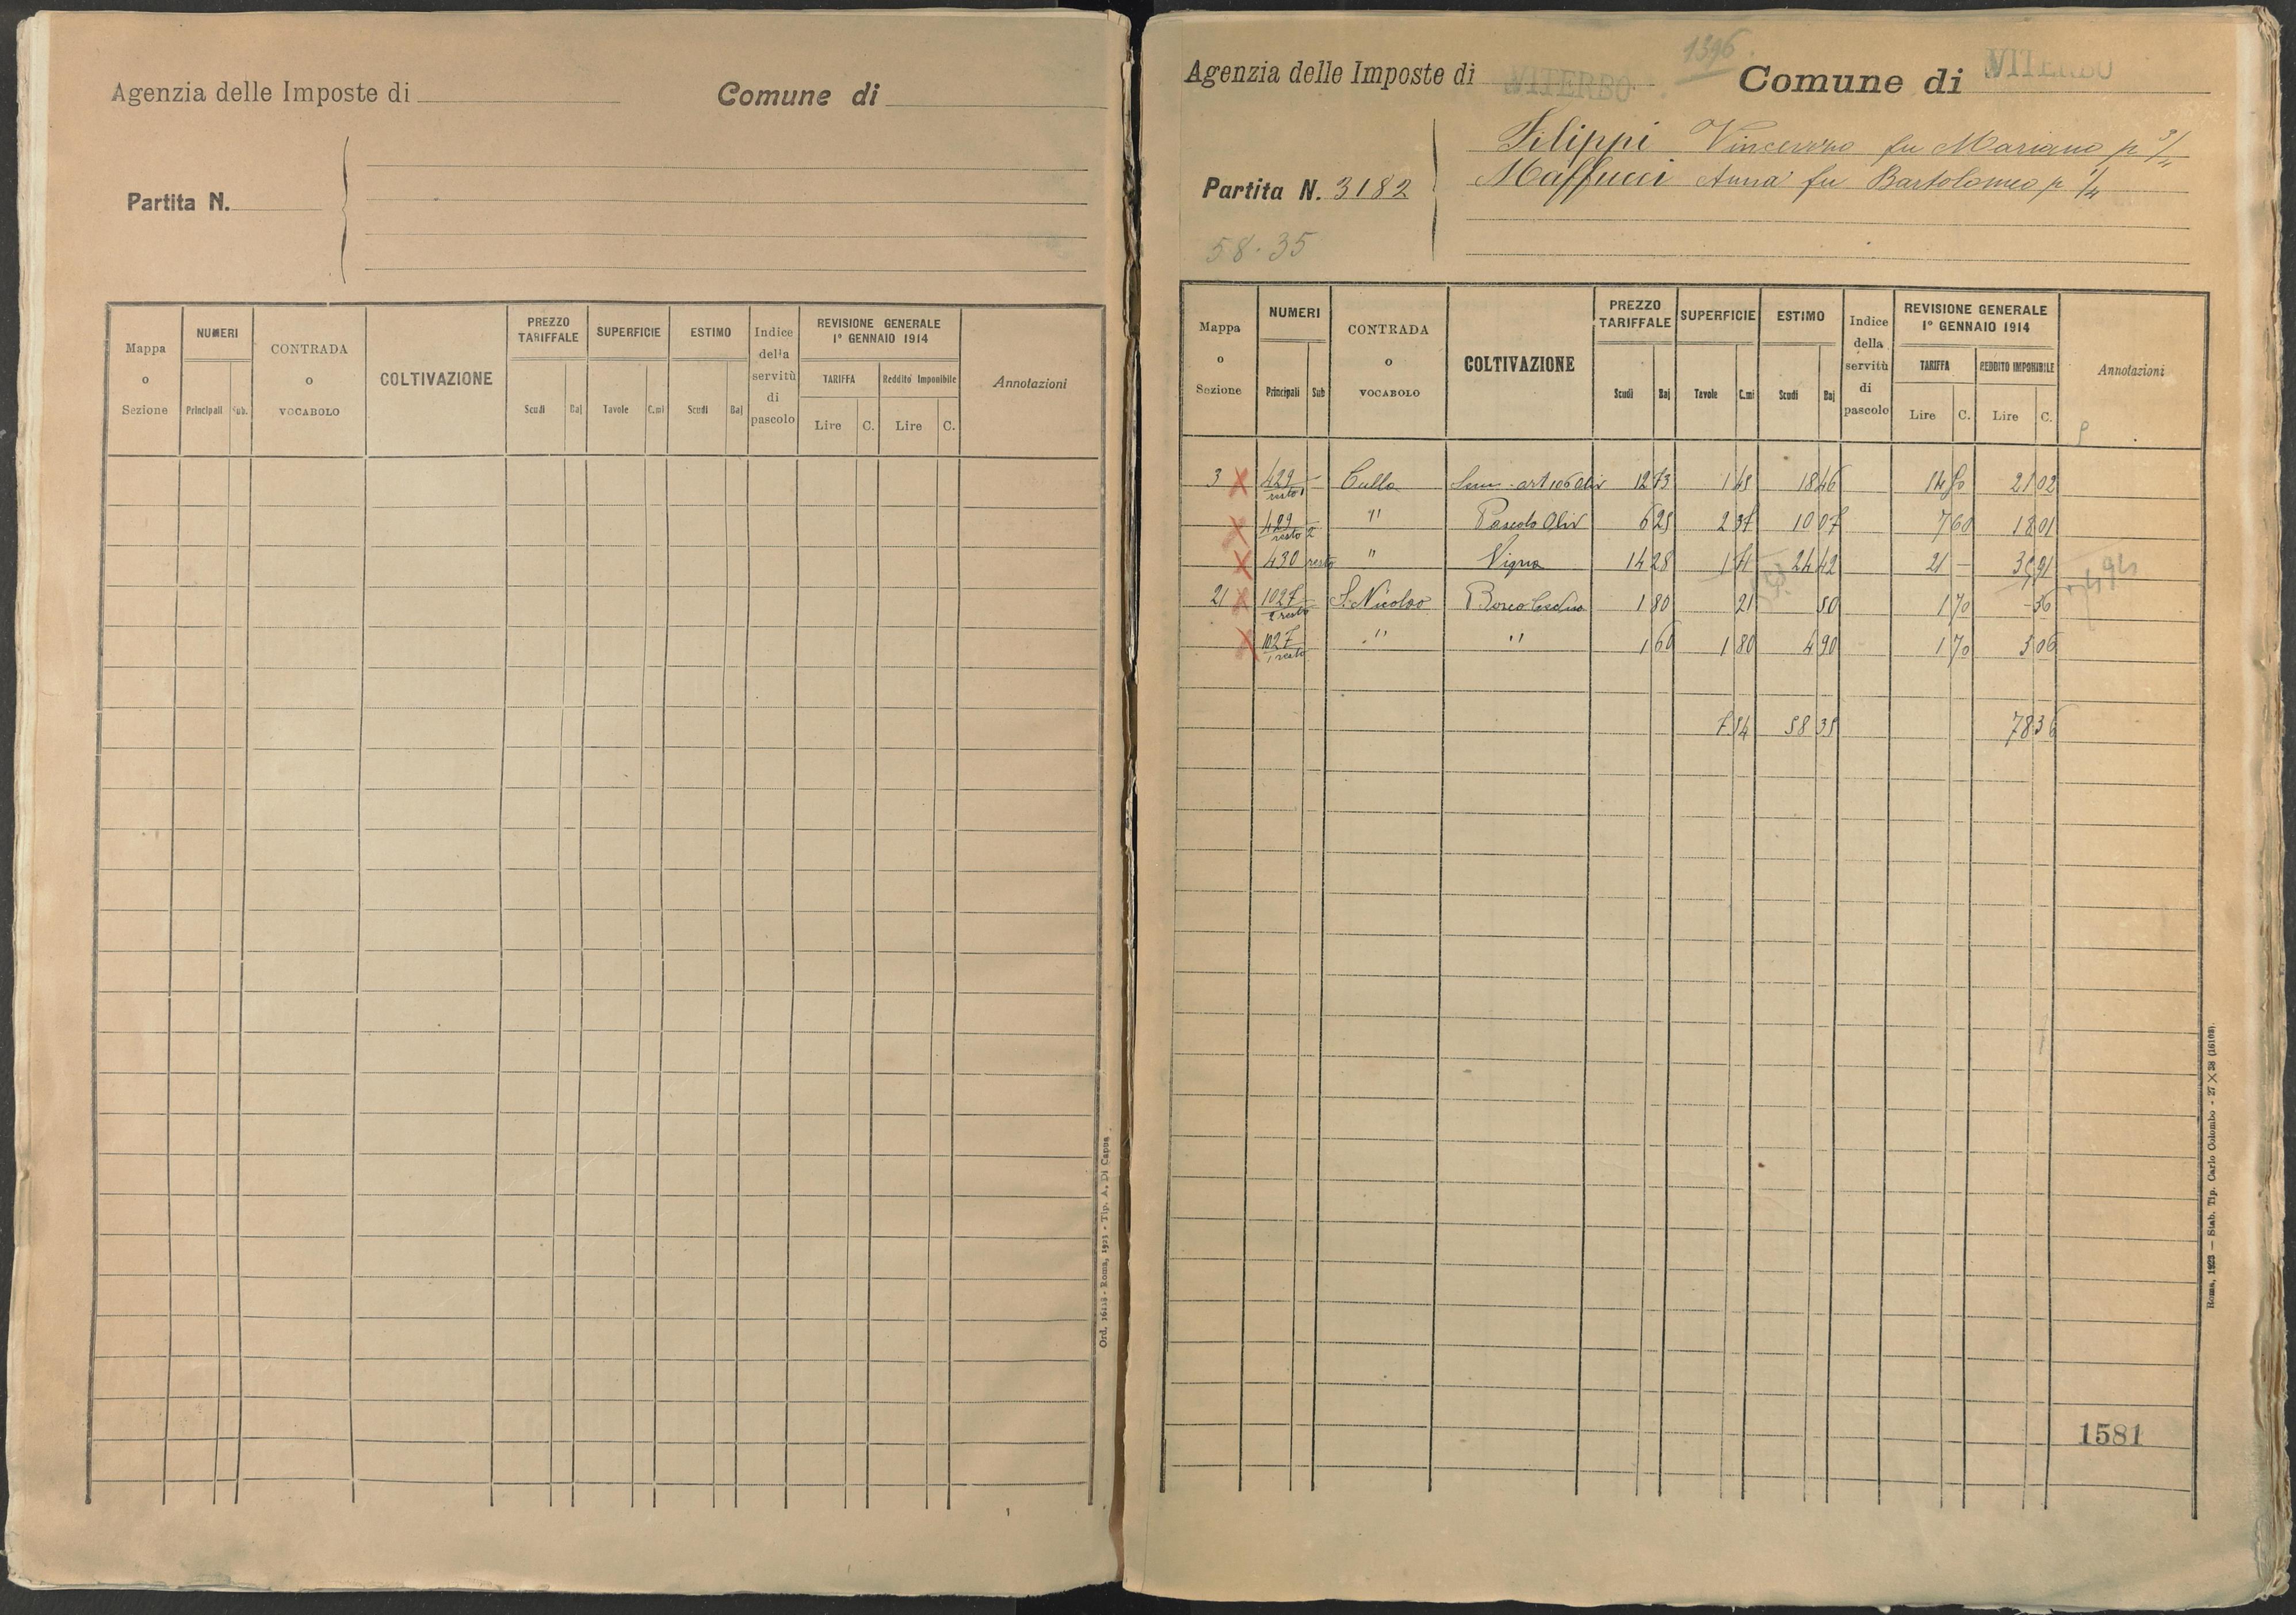 Agenzia delle Imposte di
Comune di
Partita N.
Mappa o Sezione
NUMERI
Principali Sub.
CONTRADA o VOCABOLO
COLTIVAZIONE
PREZZO TARIFFALE
Scudi Baj
SUPERFICIE
Tavole C.mi
ESTIMO
Scudi Baj
Indice della servitù di pascolo
REVISIONE GENERALE
1° GENNAIO 1914
TARIFFA Reddito Imponibile
Lire C. Lire C.
Annotazioni
Ord. 16418 - Roma, 1923 - Tip. A. Di Capua
1396
Agenzia delle Imposte di VITERBO
Comune di VITERBO
Filippi Vincenzo fu Mariano p 3/4
Maffucci Anna fu Bartolomeo p 1/4
Partita N. 3182
58.35
Mappa o Sezione
NUMERI
Principali Sub
CONTRADA o VOCABOLO
COLTIVAZIONE
PREZZO TARIFFALE
Scudi Baj
SUPERFICIE
Tavole C.mi
ESTIMO
Scudi Baj
Indice della servitù di pascolo
REVISIONE GENERALE
1° GENNAIO 1914
TARIFFA REDDITO IMPONIBILE
Lire C. Lire C.
Annotazioni
3 X 429 resto 1 Cullo 12 73 1 45 18 46 21 02
X 429 resto 2 " Pascolo Oliv 6 25 2 37 10 07 7 60 18 01
X 430 resto " Vigna 14 28 1 71 24 42 21 — 35 91
21 X 1027 2 resto S. Nicolao 1 80 21 50 1 70 - 36
X 1027 1 resto " " 1 60 1 80 4 90 1 70 3 06
7 54 58 35 78 36
1581
Roma, 1923 — Stab. Tip. Carlo Colombo - 27 X 38 (16103).